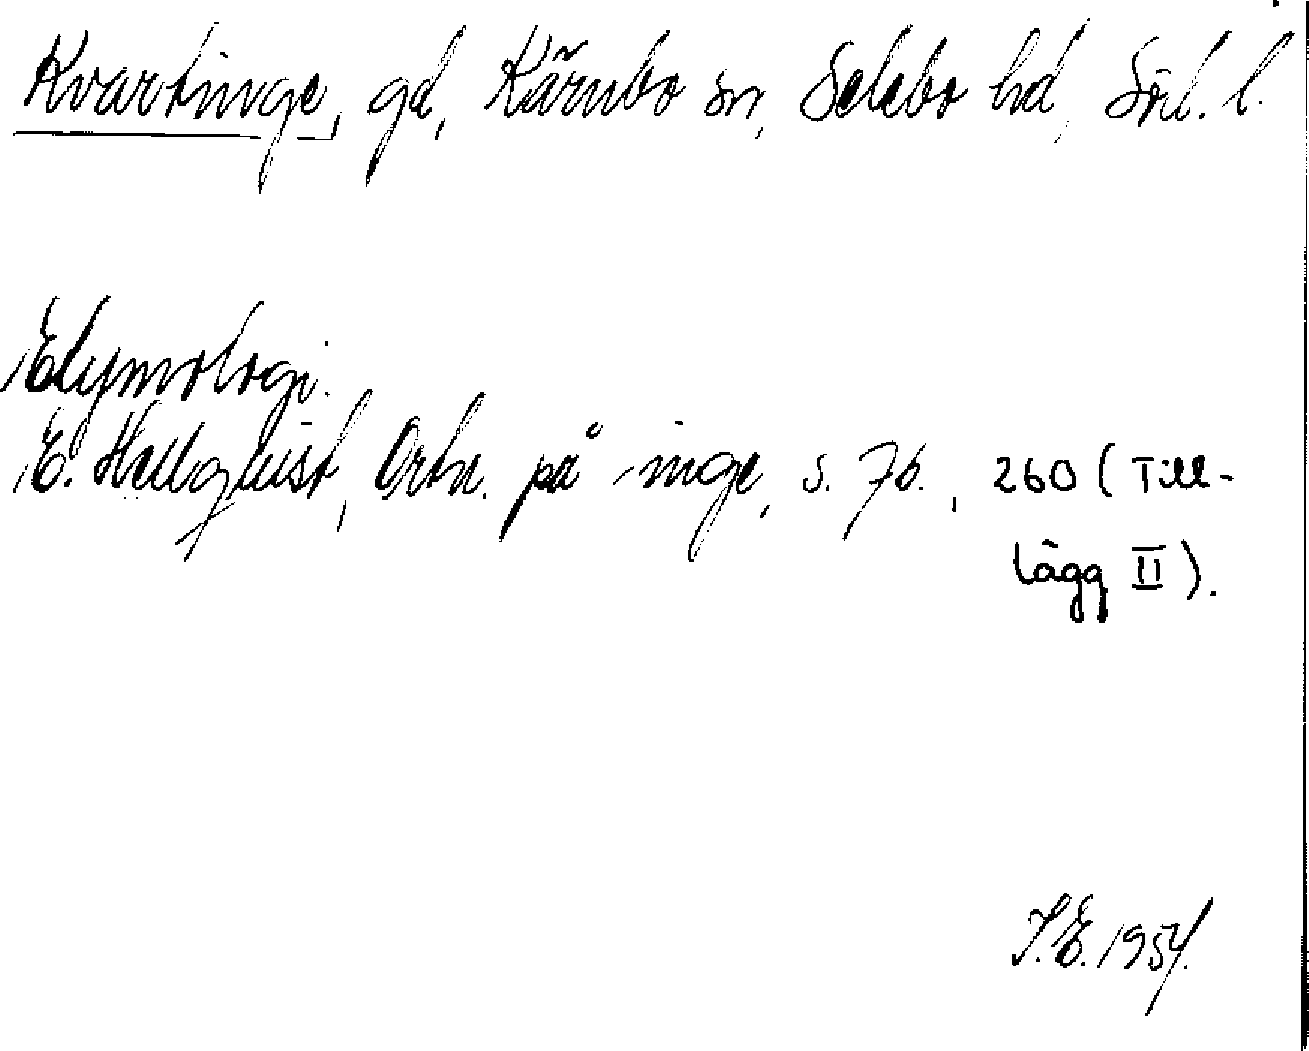 Kvartinge, gd, Kärnbo sn, Selebo hd, Söd. l.
Etymologi.
E. Hellquist, Ortn. på inge, s. 76., 260 (Till-
lägg II).
I.E. 1954.